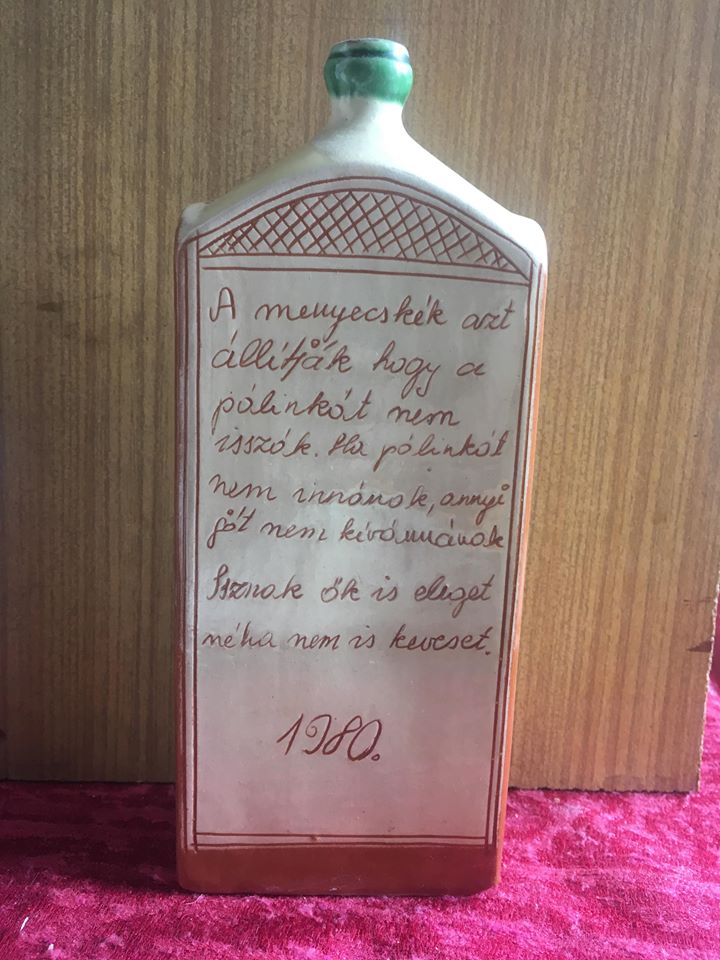 A menyecskék azt
állítják hogy a
pálinkát nem
isszák. Ha pálinkát
nem innának, annyi
gőt nem kívánnának
Isznak ők is eleget
néha nem is keveset.
1980.